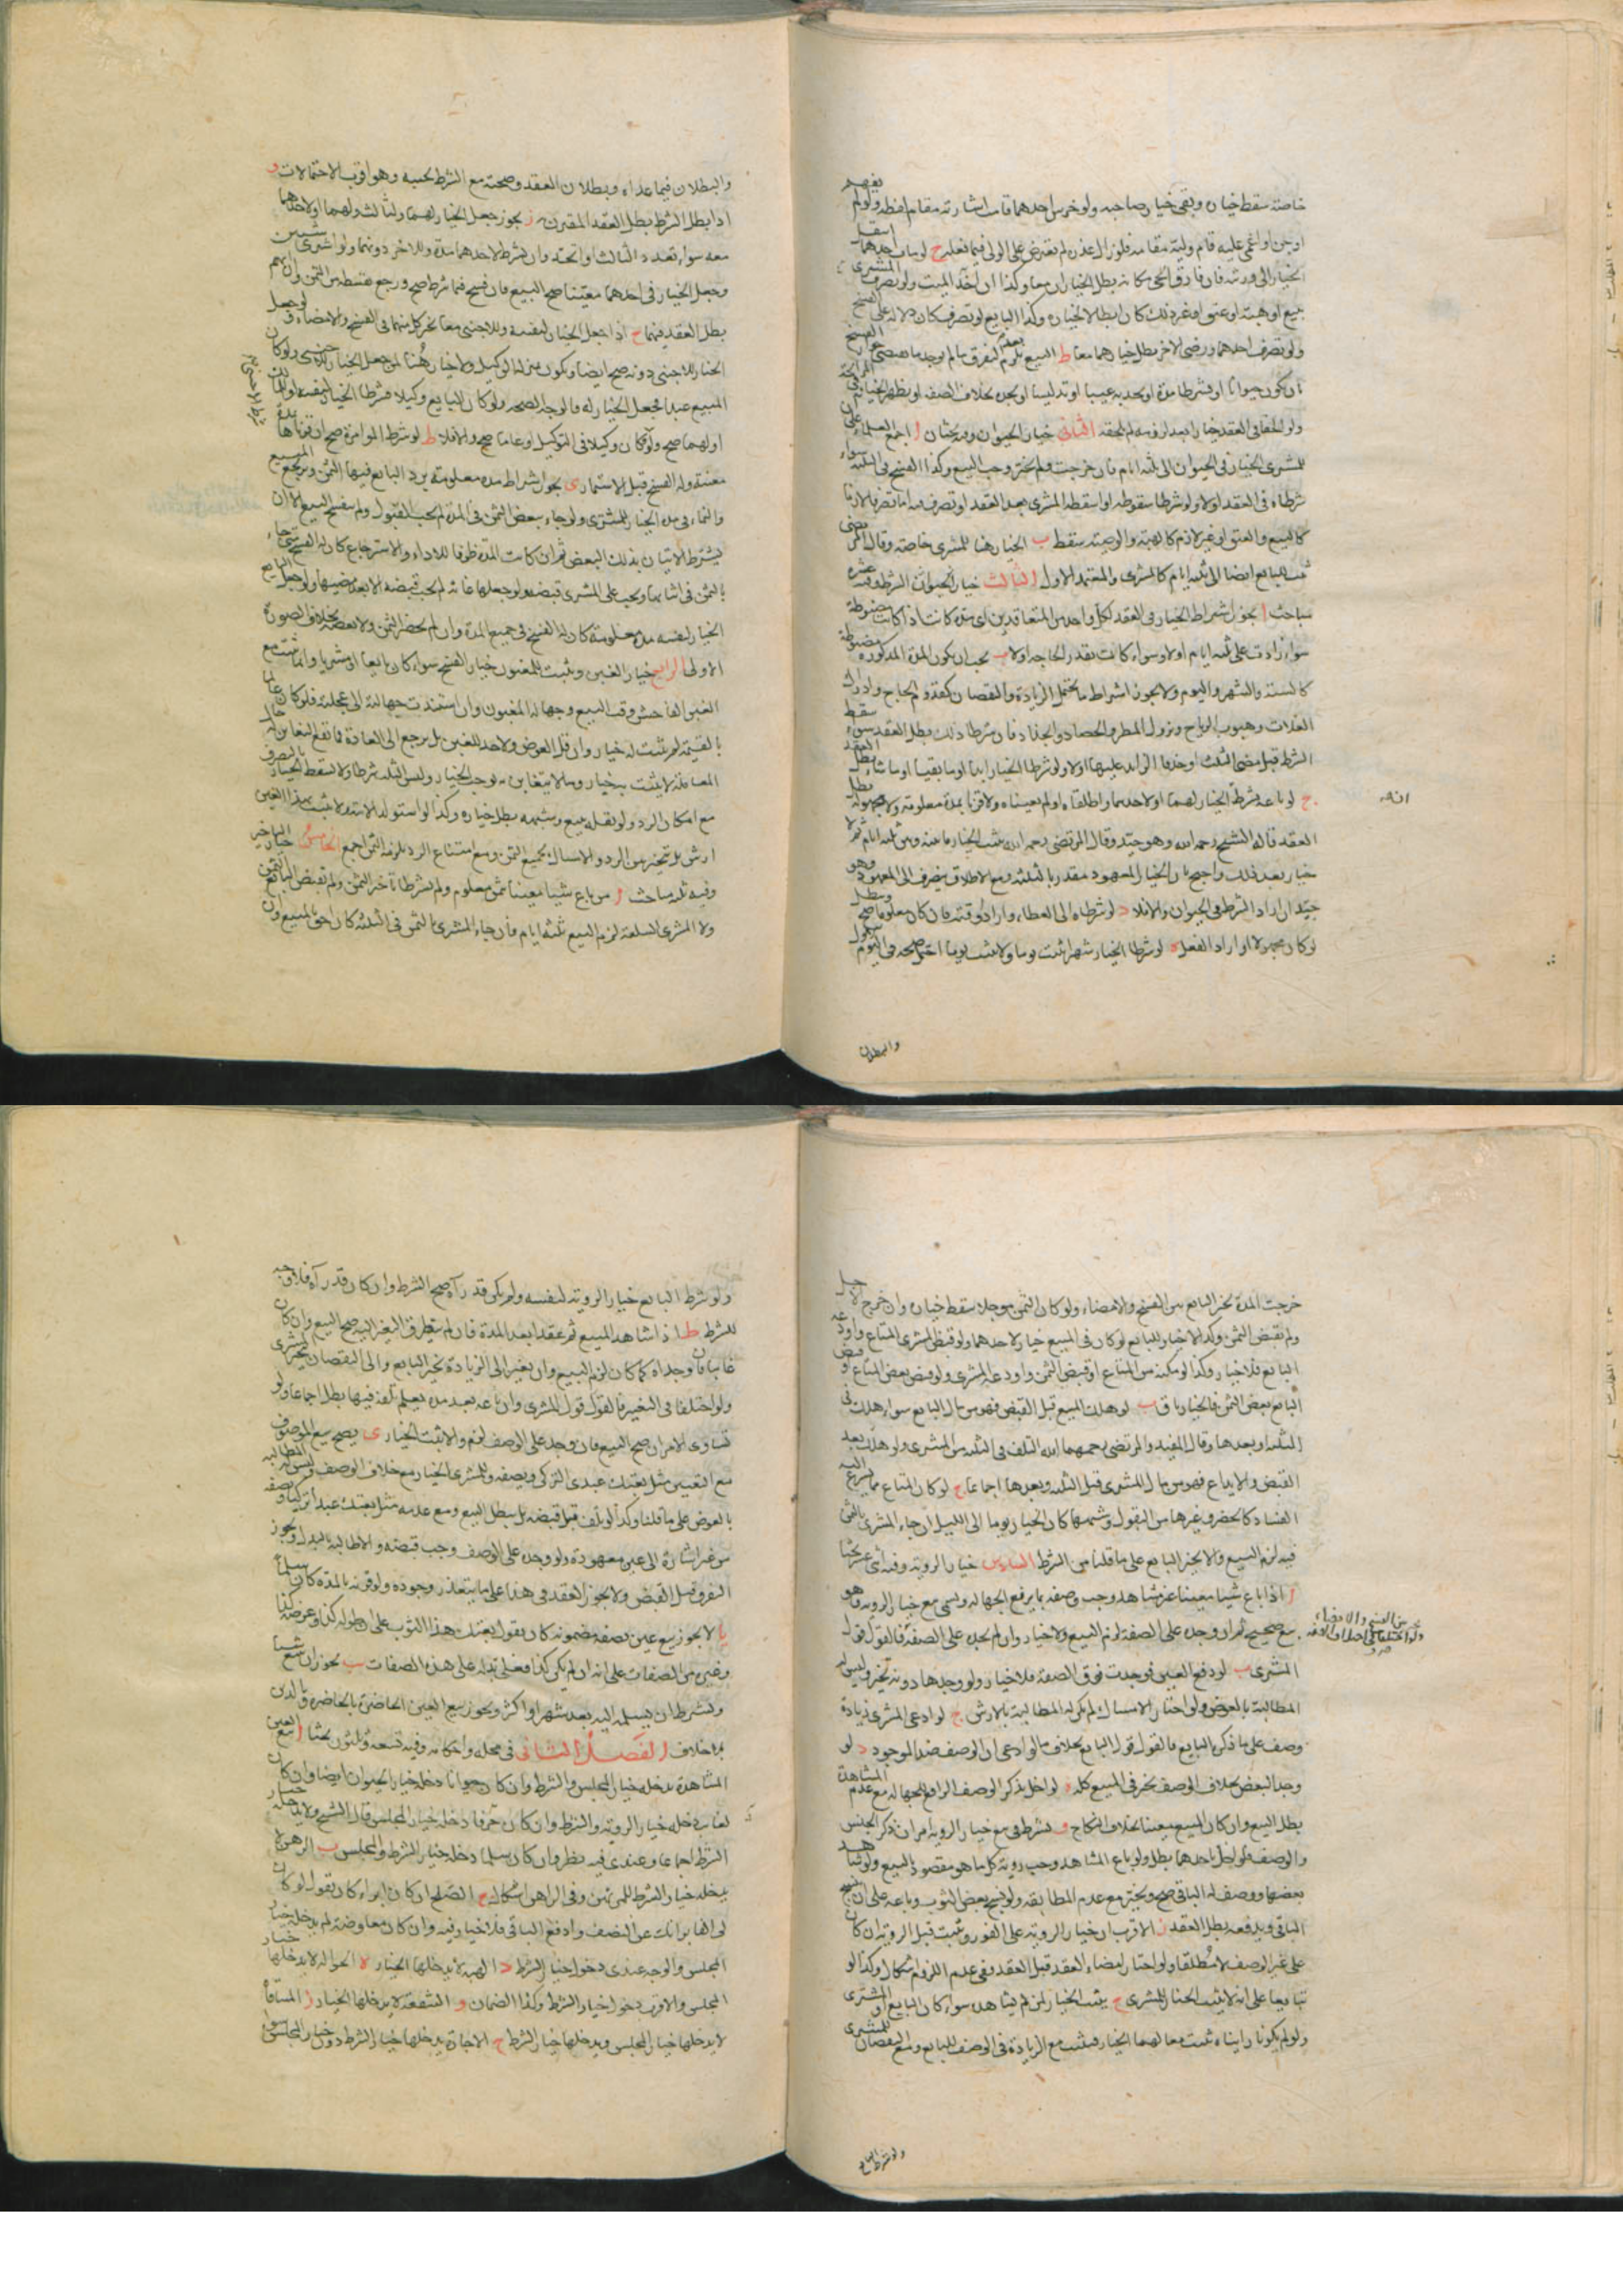 خاصة سقط خياره وبقى خيار صاحبه ولو خرس احدهما قامت اشارته مقام لفظه ولو لم يفهم
او جن او اغمى عليه قام وليه مقامه فلو زال العذر لم يعترض على الولى فيما فعله ح لو مات احدهما انتقل
الخيار الى ورثته فان فارق الحى مكانه بطل الخياران معا وكذا ان اخذ الميت ولو تصرف المشترى
ببيع او هبة او عتق او غير ذلك كان ابطالا لخياره وكذا البايع لو تصرف كان دلالة على الفسخ
ولو تصرف احدهما ورضى الاخر بطل خيارهما معا ط البيع يلزم بعد التفرق ما لم يوجد ما يقتضى جواز الفسخ
بان يكون حيوانا او يشترطا مدة او يجد به عيبا او تدليسا او يجده بخلاف الصفة او يظهر الخيانة فى المرابحة
ولو الحقا فى العقد خيارا بعد لزومه لم يلحقه الثانى خيار الحيوان وفيه بحثان ا اجمع العلماء على
للمشترى الخيار فى الحيوان الى ثلثة ايام فان خرجت ولم يختر وجب البيع وكذا الفسخ فى الثلثة سواء
شرطاه فى العقد او لا ولو شرطا سقوطه او اسقطه المشترى بعد العقد او تصرف فيه اما تصرفا لازما
كالبيع والعتق او غير لازم كالهبة والوصية سقط ب الخيار هنا للمشترى خاصة وقال المرتضى
يثبت للبايع ايضا الى ثلثة ايام كالمشترى والمعتمد الاول الثالث خيار الحيوان الشرط وفيه عشرة
مباحث ا يجوز اشتراط الخيار فى العقد لكل واحد من المتعاقدين اى مدة كانت اذا كانت مضبوطة
سواء زادت على ثلثة ايام او لا وسواء كانت بقدر الحاجة او لا ب يجب ان يكون المدة المذكورة مضبوطة
كالسنة والشهر واليوم ولا يجوز اشتراط ما يحتمل الزيادة والنقصان كقدوم الحاج وادراك
الغلات وهبوب الرياح ونزول المطر والحصاد والجذاذ فان شرطا ذلك بطل العقد سواء سقط
الشرط قبل مضى الثلث او حذفا الزايد عليها او لا ولو شرطا الخيار ابدا او ما بقيا او ما شاءا بطل العقد
ج لو باعه بشرط الخيار لهما او لاحدهما واطلقاه او لم يعيناه ولا قرناه بمدة معلومة ولا مجهولة بطل
العقد قاله الشيخ رحمه الله وهو جيد وقال المرتضى رحمه الله يثبت الخيار ما بينه وبين ثلثة ايام ثم لا
خيار بعد ذلك واحتج بان الخيار المعهود مقدر بالثلثة ومع الاطلاق ينصرف الى المعهود وهو
جيد ان اراد الشرط فى الحيوان والا فلا د لو شرطاه الى العطاء وارادا وقته فان كان معلوما صح وبطل
لو كان مجهولا او اراد الفعل ه لو شرطا الخيار شهرا يثبت يوما ولا يثبت يوما احتمل صحته فى اليوم الاول
والبطلان
والبطلان فيما عداه وبطلان العقد وصحته مع الشرط بحسبه وهو اقرب الاحتمالات و
اذا بطل الشرط بطل العقد المقترن به ز يجوز جعل الخيار لهما ولثالث ولهما او لاحدهما
معه سواء تعدد الثالث او اتحد وان يشترط لاحدهما مدة وللاخر دونها ولو اشترى شيئين
وجعل الخيار فى احدهما معينا صح البيع فان فسخ فيما شرط صح ورجع بقسطه من الثمن وان ابهم
بطل العقد فيهما ح اذا جعل الخيار لنفسه وللاجنبى معا تخير كل منهما فى الفسخ والامضاء ولو جعل
الخيار للاجنبى دونه صح ايضا ويكون
المبيع عبدا فجعل الخيار له فالوجه الصحة ولو كان البايع وكيلا فشرطا الخيار لنفسه او للمالك
او لهما صح ولو كان وكيلا فى التوكيل او عاما صح والا فلا ط لو شرط المؤامرة صح ان قرناها بمدة
معينة وله الفسخ قبل الاستثمار ى يجوز اشتراط مدة معلومة يرد البايع فيها الثمن ويرتجع المبيع
والنماء فى مدة الخيار للمشترى ولو جاء ببعض الثمن فى المدة لم يجب القبول ولم ينفسخ البيع الا ان
يشترط الاتيان بذلك البعض ثم ان كانت المدة ظرفا للاداء والاسترجاع كان له الفسخ متى جاء
بالثمن فى اثنائها ويجب على المشترى قبضه ولو جعلها غاية لم يجب قبضه الا بعد مضيها ولو جعل البايع
الخيار لنفسه مدة معلومة كان له الفسخ فى جميع المدة وان لم يحضر الثمن ولا بعضه بخلاف الصورة
الاولى الرابع خيار الغبن ويثبت للمغبون خيار الفسخ سواء كان بايعا او مشتريا وانما يثبت مع
الغبن الفاحش وقت البيع وجهالة المغبون وان استندت جهالته الى عجلته فلو كان عالما
بالقيمة لم يثبت له خيار وان قل العوض ولا حد للغبن بل يرجع الى العادة فما تقع التغابن به حال
المعاملة لا يثبت به خيار وما لا يتغابن به يوجب الخيار وليس الثلث شرطا ولا يسقط الخيار بالتصرف
مع امكان الرد ولو نقله ببيع وشبهه بطل خياره وكذا لو استولد الامة ولا يثبت بهذا الغبن
ارش بل يتخير بين الرد والامساك بجميع الثمن ومع امتناع الرد يلزمه الثمن اجمع الخامس خيار التاخير
وفيه ثلثة مباحث ا من باع شيئا معينا بثمن معلوم ولم يشترطا تاخير الثمن ولم يقبض البايع الثمن
ولا المشترى السلعة لزم البيع ثلثة ايام فان جاء المشترى بالثمن فى الثلثة كان احق بالمبيع وان
خرجت المدة تخير البايع بين الفسخ والامضاء ولو كان الثمن مؤجلا سقط خياره وان خرج الاجل
ولم يقبض الثمن وكذا لا خيار للبايع لو كان فى المبيع خيار لاحدهما ولو قبض المشترى المتاع واودعه
البايع فلا خيار وكذا لو مكنه من المتاع او قبض الثمن واودعه المشترى ولو قبض بعض المتاع او قبض
البايع بعض الثمن فالخيار باق ب لو هلك المبيع قبل القبض فهو من مال البايع سواء هلك فى
الثلثة او بعدها وقال المفيد والمرتضى رحمهما الله التلف فى الثلثة من المشترى ولو هلك بعد
القبض والايداع فهو من مال المشترى قبل الثلثة وبعدها اجماعا ج لو كان المتاع مما يسرع اليه
الفساد كالخضر وغيرها من البقول وشبهها كان الخيار يوما الى الليل ان جاء المشترى بالثمن
فيه لزم البيع والا تخير البايع على ما قلنا من الشرط السادس خيار الروية وفيه اثنى عشر بحثا
ا اذا باع شيئا معينا غير مشاهد وجب وصفه بما يرفع الجهالة ويسمى مع خيار الروية وهو
بيع صحيح ثم ان وجد على الصفة لزم البيع ولا خيار وان لم يجد على الصفة فالقول قول
المشترى ب لو دفع العين فوجدت فوق الصفة فلا خيار ولو وجدها دونه تخير وليس له
المطالبة بالعوض ولو اختار الامساك لم يكن له المطالبة بالارش ج لو ادعى المشترى زيادة
وصف على ما ذكره البايع فالقول قول البايع بخلاف ما لو ادعى ان الوصف ضد الموجود د لو
وجد البعض بخلاف الوصف تخير فى المبيع كله ه لو اخل بذكر الوصف الرافع للجهالة مع عدم المشاهدة
بطل البيع وان كان المبيع معينا بخلاف النكاح و يشترط فى بيع خيار الروية امران ذكر الجنس
والوصف فلو اخل باحدهما بطل ولو باع المشاهد وجب روية كل ما هو مقصود بالبيع ولو شاهد
بعضها ووصف له الباقى صح وتخير مع عدم المطابقة ولو نسج بعض الثوب وباعه على ان ينسج
الباقى ويدفعه بطل العقد ز الاقرب ان خيار الروية على الفور ويثبت قبل الروية ان كان
على غير الوصف لا مطلقا ولو اختار امضاء العقد قبل العقد ففى عدم اللزوم اشكال وكذا لو
تبايعا على انه لا يثبت الخيار للمشترى ح يثبت الخيار لمن لم يشاهد سواء كان البايع او المشترى
ولو لم يكونا رايناه ثبت معا لهما الخيار فيثبت مع الزيادة فى الوصف للبايع ومع النقصان للمشترى
ولو شرط البايع
ولو شرط البايع خيار الروية لنفسه ولم يكن قد رآه صح الشرط وان كان قد رآه فلا وجه
للشرط ط اذا شاهد المبيع ثم عقد بعد المدة فان لم يتطرق التغير اليه صح البيع وان كان
غايبا فان وجداه كما كان لزم البيع وان تغير الى الزيادة تخير البايع والى النقصان تخير المشترى
ولو اختلفا فى التغير فالقول قول المشترى وان باعه بعد مدة يعلم تلفه فيها بطل اجماعا ولو
تساوى الامران صح البيع فان وجد على الوصف لزم والا ثبت الخيار ى يصح بيع الموصوف
مع التعيين مثل بعتك عبدى التركى ويصفه وللمشترى الخيار مع خلاف الوصف وليس له المطالبة
بالعوض على ما قلنا وكذا لو تلف قبل قبضه بل يبطل البيع ومع عدمه مثل بعتك عبدا تركيا ويصفه
من غير اشارة الى عين معهودة ولو وجد على الوصف وجب قبضه والا طالبه بالبدل ويجوز
التفرق قبل القبض ولا يجوز العقد فى هذا على ما يتعذر وجوده ولو قرنه بالمدة كان سلما
يا لا يجوز بيع عين بصفة مضمونة كان يقول بعتك هذا الثوب على ان طوله كذا وعرضه كذا
وغيره من الصفات على انه ان لم يكن كذا فعلى بدله على هذه الصفات يب يجوز ان يبيع شيئا
ويشترط ان يسلمه اليه بعد شهر او اكثر ويجوز بيع العين الحاضرة بالحاضرة وبالدين
بلا خلاف الفصل الثانى فى محله واحكامه وفيه تسعة وثلثون بحثا ا بيع العين
المشاهدة يدخله خيار المجلس والشرط وان كان حيوانا دخله خيار الحيوان ايضا وان كان
لغايب دخله خيار الروية والشرط وان كان صرفا دخله خيار المجلس قال الشيخ ولا يدخله خيار
الشرط اجماعا وعندى فيه نظر وان كان سلما دخله خيار الشرط والمجلس ب الرهن لا
يدخله خيار الشرط للمرتهن وفى الراهن اشكال ج الصلح ان كان ابراء كان يقول لو كان
لى الف ابراتك عن النصف وادفع الباقى فلا خيار فيه وان كان معاوضة لم يدخله خيار
المجلس والوجه عندى دخول خيار الشرط د الهبة لا يدخلها الخيار ه الحوالة لا يدخلها خيار
المجلس والاقرب دخول خيار الشرط وكذا الضمان و الشفعة لا يدخلها الخيار ز المساقاة
لا يدخلها خيار المجلس ويدخلها خيار الشرط ح الاجارة يدخلها خيار الشرط دون خيار المجلس سواء